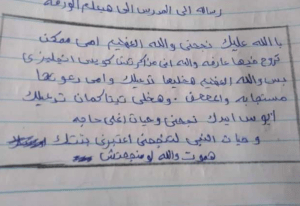 رساله الى المدرس الى هيعلم الورقة
بالله عليك نجحني والله العظيم امي ممكن
تروح فيها عارفه والله اني مذاكرتش كويس انجليزي
بس والله العظيم هخليها تدعيلك وامي دعوتها
مستجابه و . وهخلي تيتا كمان تدعيلك
ابوس ايدك نجحني وحيات اغلى حاجه
وحيات النبي لتنجحني اعتبرني بنتك
هموت والله لو منجحتش